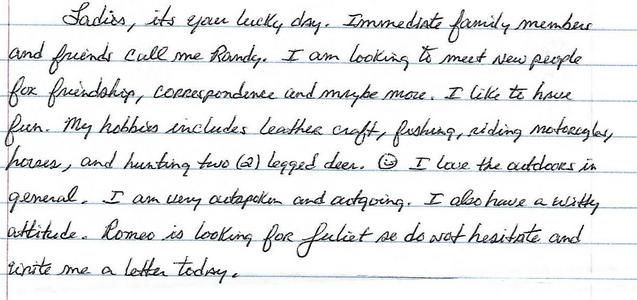 Ladies, its your lucky day. Immediate family members
and friends call me Randy. I am looking to meet new people
for friendship, correspondence and maybe more. I like to have
fun. My hobbies includes leather craft, fishing, riding motorcycles,
horses, and hunting two (2) legged deer. ☺ I love the outdoors in
general. I am very outspoken and outgoing. I also have a witty
attitude. Romeo is looking for Juliet so do not hesitate and
write me a letter today.